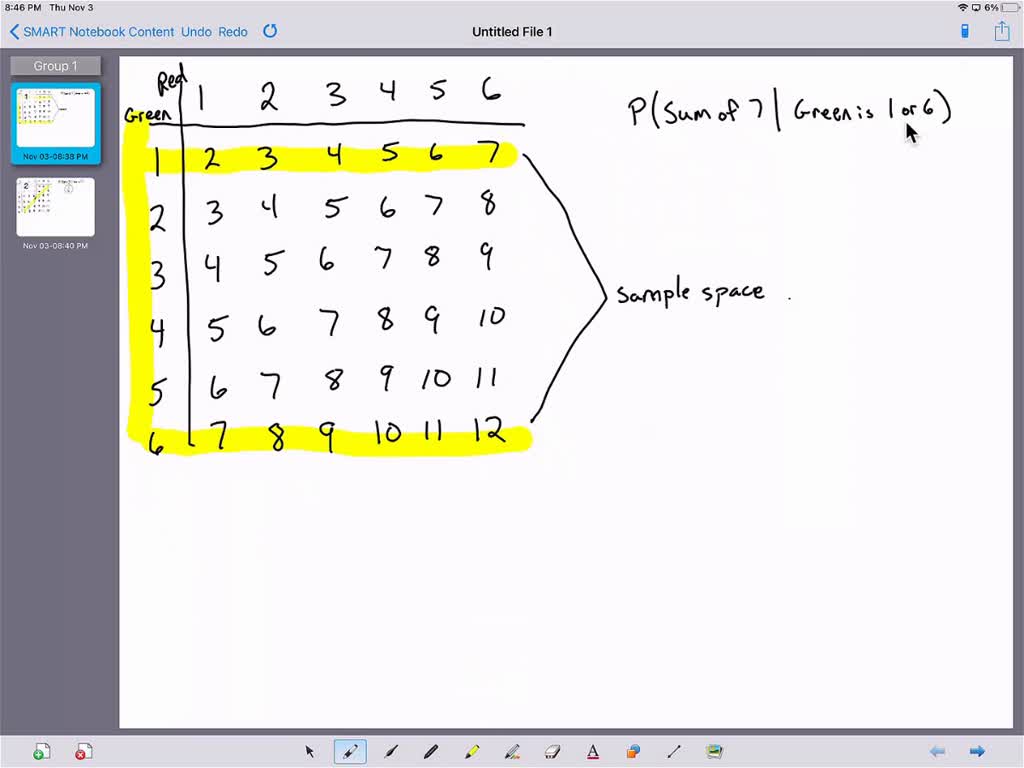 8:46 PM Thu Nov 3
6%
SMART Notebook Content Undo Redo
Untitled File 1
Group 1
Nov 03-08:38 PM
Nov 03-08:40 PM
Red 1 2 3 4 5 6
Green
1 2 3 4 5 6 7
2 3 4 5 6 7 8
3 4 5 6 7 8 9
4 5 6 7 8 9 10
5 6 7 8 9 10 11
6 7 8 9 10 11 12
P(Sum of 7 | Green is 1 or 6)
sample space .
A